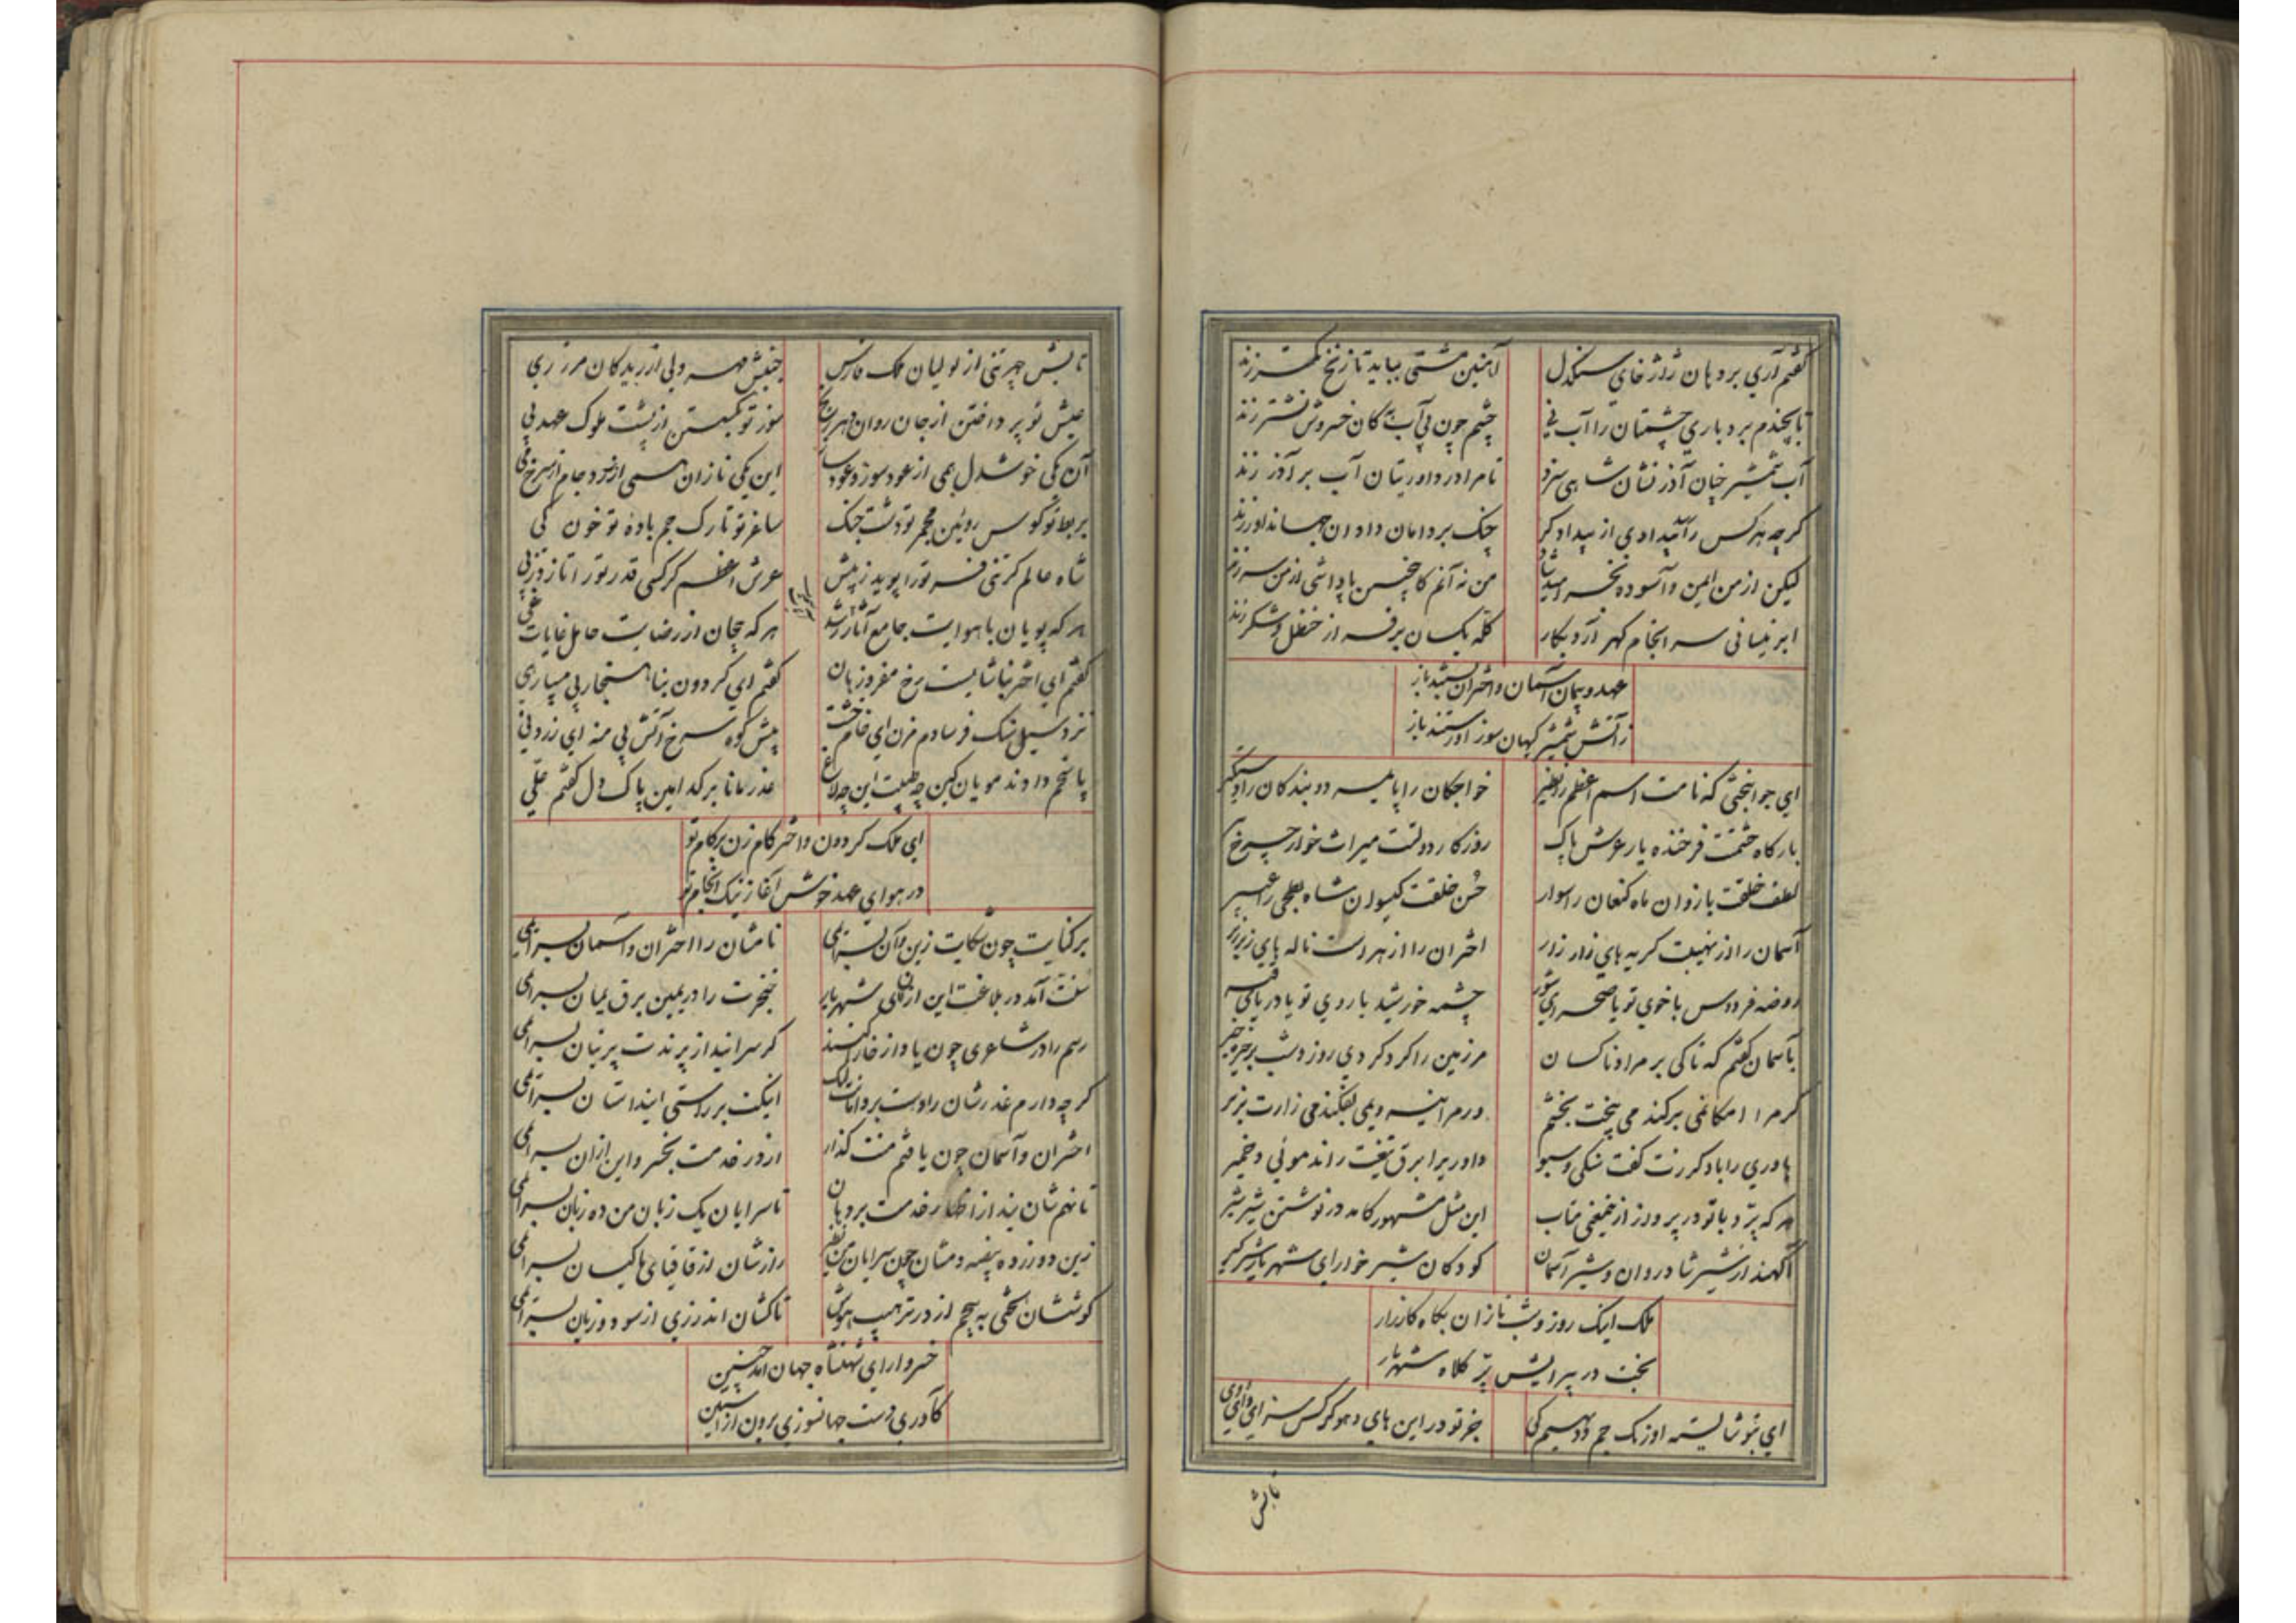 گفتم آری بر دهان ژاژخای سنگدل
آهنین مشتی بباید تا زنخ کمتر زند
تا بچندم بردباری چشمتان را آب نی
چشم چون بی آب کان خسروش نشتر زند
آب شمشیر خیان آذر نشان شاهی سزد
تا مرا در داوریتان آب بر آذر زند
کرچه هر کس را بیدادی از بیدادکر
چنک بر دامان داوان جهاندار زند
لیکن از من ایمن و آسوده
من نه آنم کاچنین پاداشی از من سر زند
ابر نیسانی سر انجام کهر آرد بکار
کله یکسان بر از حنظل و شکر زند
عهد و پیمان آسمان و اختران بستند باز
ز آتش شمشیر کیهان سوز او رستند باز
ای جوانبختی که نامت اسم اعظم را نظیر
خواجکان را پایمرد و بندکان را دستکیر
بارکاه حشمتت فرخنده یار عرش پاک
روزکار دولتت میراث خوار چرخ پیر
لطف خلقت بازوان ماه کنعان را سوار
حسن خلقت کیسوان شاه بطحی را عبیر
آسمان را از نهیبت کریه های زار زار
اختران را از هراست ناله های زیر زیر
روضه فردوس با خوی تو یا صحرای شور
چشمه خورشید با روی تو یا دریای قیر
با آسمان کفتم که تا کی بر مراد ناکسان
مر زمین را کرد کردی روز و شب بر خیر خیر
کر مرا امکانمی برکندمی بیخت بخشم
ور مرا نیرویمی بفکندمی زارت بزیر
یاوری را باد کر زنت کفت سنکی و سبو
داوریرا برق تیغت راند موئی و خمیر
هر که پرد با تو در پرورز از ضیغمی متاب
این مثل مشهور کامد در نوشتن شیر شیر
آکهند از شیر شادروان و شیر آسمان
کودکان شیرخوار ای شهریار شیرکیر
ملک اینک روز و شب نازان بکاه کارزار
بخت در پیرایش پر کلاه شهریار
ای بتو شایسته اورنک جم و دیهیم کی
جز تو در این های و هو کر کس سزای وای وی
تابش
تابش چهر تنی از لولیان ملک فارس
جنبش مهر دلی از ریدکان مرز ری
عیش تو پرداختن از جان روان
سوز تو بکسستن از پشت ملوک عهد پی
آن یکی خوشدل همی از عود سوز و عود ساز
این یکی نازان همی از زرد جام از سرخ می
بربط تو کوس روئین مجمر تو دشت جنک
ساغر تو تارک جم باده تو خون کی
شاه عالم کر تنی فر تو را پوید ز پیش
عرش اعظم کرسی قدر تو را تازد ز پی
هر که پویان با هوایت جامع آثار رشد
هر که پیچان از رضایت حامل غایات غی
کفتم ای اختر نیاشایت رخ مفروز هان
کفتم ای کردون بناهنجار پی مسپار هی
نزد سیل سنک فرسا دم مزن ای خام خشت
پیش کوه سرخ آتش پی منه ای زرد نی
پاسخم دادند مویان کین چه طیبت این چه لاغ
عذر مانا بر کد امین پاک دل کفتم علی
ای ملک کردون و اختر کام زن بر کام تو
در هوای عهد خوش آغاز نیک انجام تو
بر کنایت چون شکایت زین و آن بسرایمی
نامشان را اختران و آسمان بسرایمی
سفت آمد در بلاغت این ازان ای شهریار
خنجرت را در یمین برق یمان بسرایمی
رسم را در شاعری چون یاد از خارا کنند
کر سرائید از پرندت پرنیان بسرایمی
کرچه دارم عذرشان راوست بر دامانت لیک
اینکت بر راستی اینداستان بسرایمی
اختران و آسمان چون یافتم منت کذار
از در خدمت بخسرو این ازان بسرایمی
تا نهم شان بند از اظهار خدمت بر دهان
تا سرایان یک زبان من ده زبان بسرایمی
زین دو زرده بیضه دمشان چون سرایان
رازشان از قاقبای ماکیان بسرایمی
کوششان لختی به پیچم از در ترهیب
تا کشان اندرزی از سود و زیان بسرایمی
خسروا رای شهنشاه جهان آمد چنین
کآوری دست جهانسوزی برون از آستین